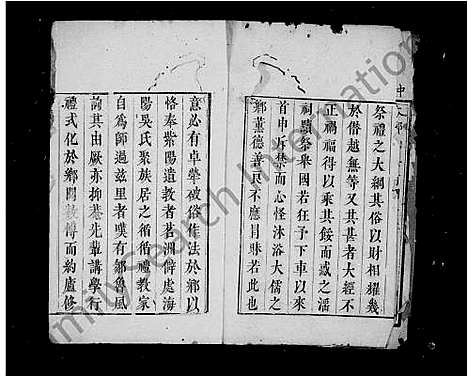 祭禮之大綱其俗以財相耀幾
於僭越無等又其甚者大經不
正禍福得以乘其餒而惑之淫
祠黷祭舉國若狂予下車以來
首申訴禁而心怪沐浴大儒之
鄉薰德善良不應冒昧若此也
意必有卓犖破俗作法於鄉以
恪奉紫陽遺教者若洲僻處海
陽吳氏聚族居之循循禮教家
自為師過茲里者噗有鄒魯風
詢其由厥亦抑菴先輩講學行
禮式化於鄉閭敦博而約廬修
FamilySearch International